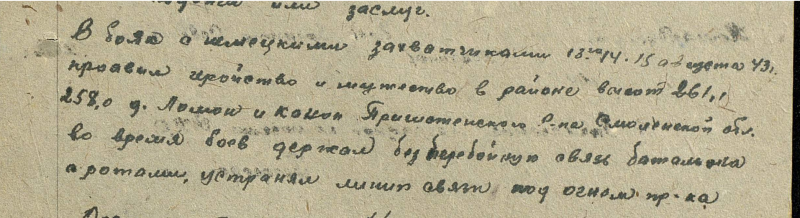 или заслуг.
В боях с немецкими захватчиками 13–14.15 августа 43г.
проявил геройство и мужество в районе высот 261,1
258,0 д. Ломон и Канон Пришотенского р-на Смоленской обл.
во время боев держал безперебойную связь батальона
с ротами, устранял линии связи под огном пр-ка